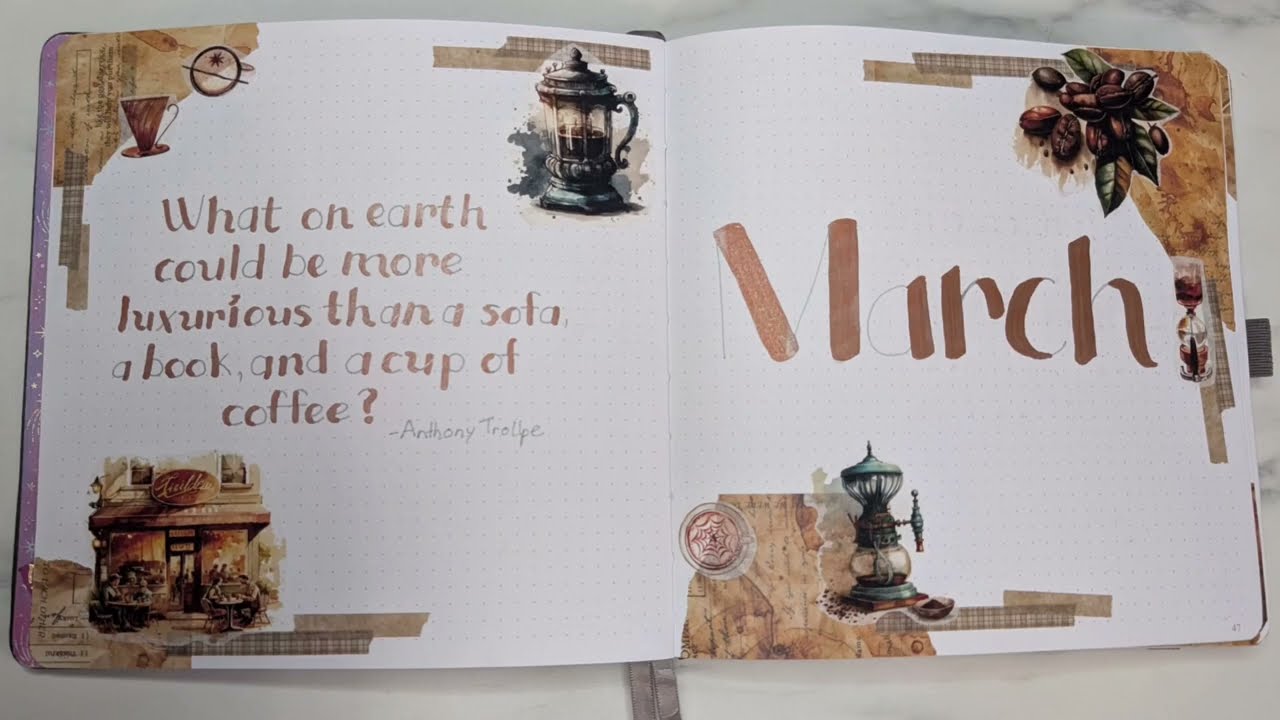 What on earth
could be more
luxurious than a sofa,
a book, and a cup of
coffee?
-Anthony Trollpe
March
47